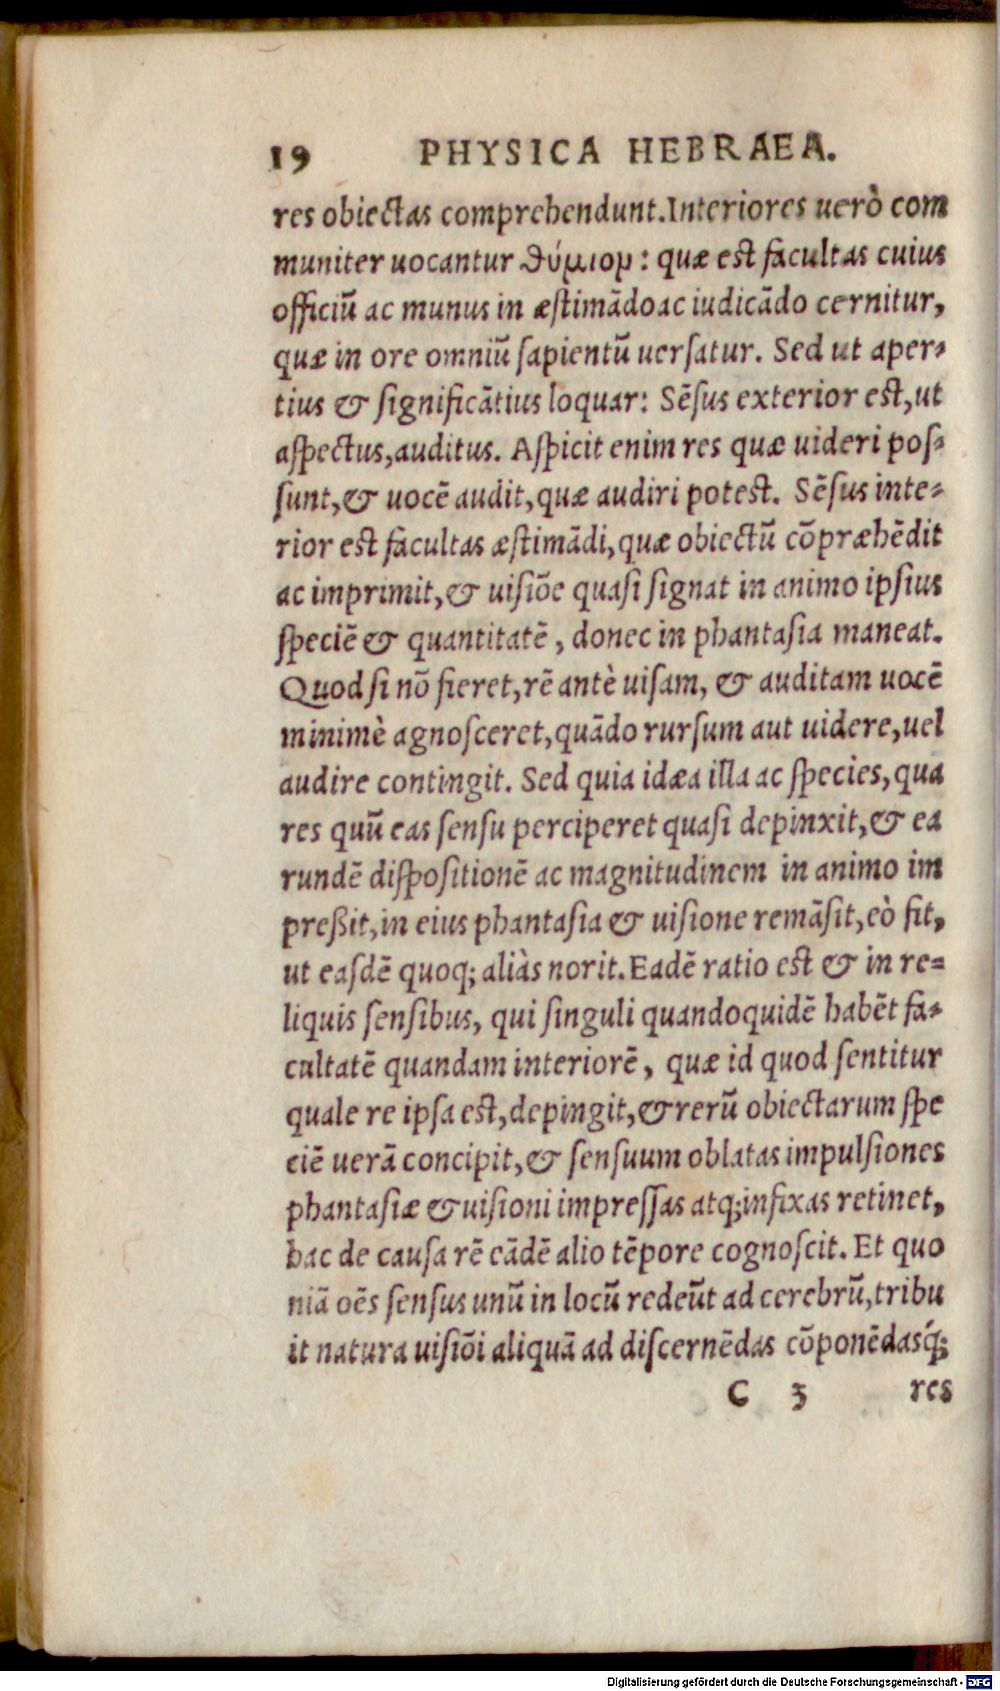 19 PHYSICA HEBRAEA.
res obiectas comprehendunt. Interiores uerò com
muniter uocantur ϑύμιομ: quæ est facultas cuius
officiũ ac munus in æstimãdo ac iudicãdo cernitur,
quæ in ore omniũ sapientũ uersatur. Sed ut aper-
tius & significãtius loquar: Sẽsus exterior est, ut
aspectus, auditus. Aspicit enim res quæ uideri pos-
sunt, & uocẽ audit, quæ audiri potest. Sẽsus inte-
rior est facultas æstimãdi, quæ obiectũ cõpræhẽdit
ac imprimit, & uisiõe quasi signat in animo ipsius
speciẽ & quantitatẽ, donec in phantasia maneat.
Quod si nõ fieret, rẽ antè uisam, & auditam uocẽ
minimè agnosceret, quãdo rursum aut uidere, uel
audire contingit. Sed quia idæa illa ac species, qua
res quũ eas sensu perciperet quasi depinxit, & ea
rundẽ dispositionẽ ac magnitudinem in animo im
preßit, in eius phantasia & uisione remãsit, eò fit,
ut easdẽ quoq; aliàs norit. Eadẽ ratio est & in re-
liquis sensibus, qui singuli quandoquidẽ habẽt fa-
cultatẽ quandam interiorẽ, quæ id quod sentitur
quale re ipsa est, depingit, & rerũ obiectarum spe
ciẽ uerã concipit, & sensuum oblatas impulsiones
phantasiæ & uisioni impressas atq; infixas retinet,
hac de causa rẽ eãdẽ alio tẽpore cognoscit. Et quo
niã oẽs sensus unũ in locũ redeũt ad cerebrũ, tribu
it natura uisiõi aliquã ad discernẽdas cõponẽdasq́;
C 3 res
Digitalisierung gefördert durch die Deutsche Forschungsgemeinschaft - DFG